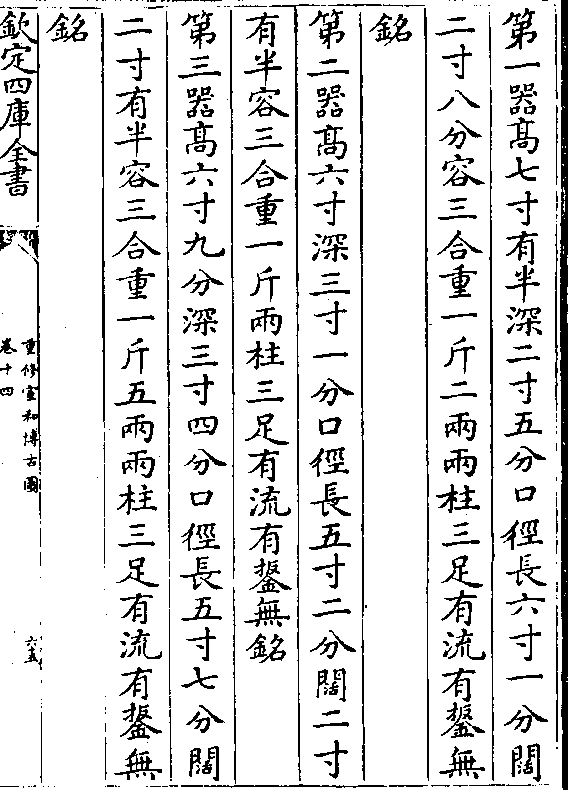 第一器髙七寸有半深二寸五分口徑長六寸一分闊
二寸八分容三合重一斤二兩兩柱三足有流有鋬無
銘
第二器髙六寸深三寸一分口徑長五寸二分闊二寸
有半容三合重一斤兩柱三足有流有鋬無銘
第三器髙六寸九分深三寸四分口徑長五寸七分闊
二寸有半容三合重一斤五兩兩柱三足有流有鋬無
銘
欽定四庫全書
重修宣和博古圖
卷十四